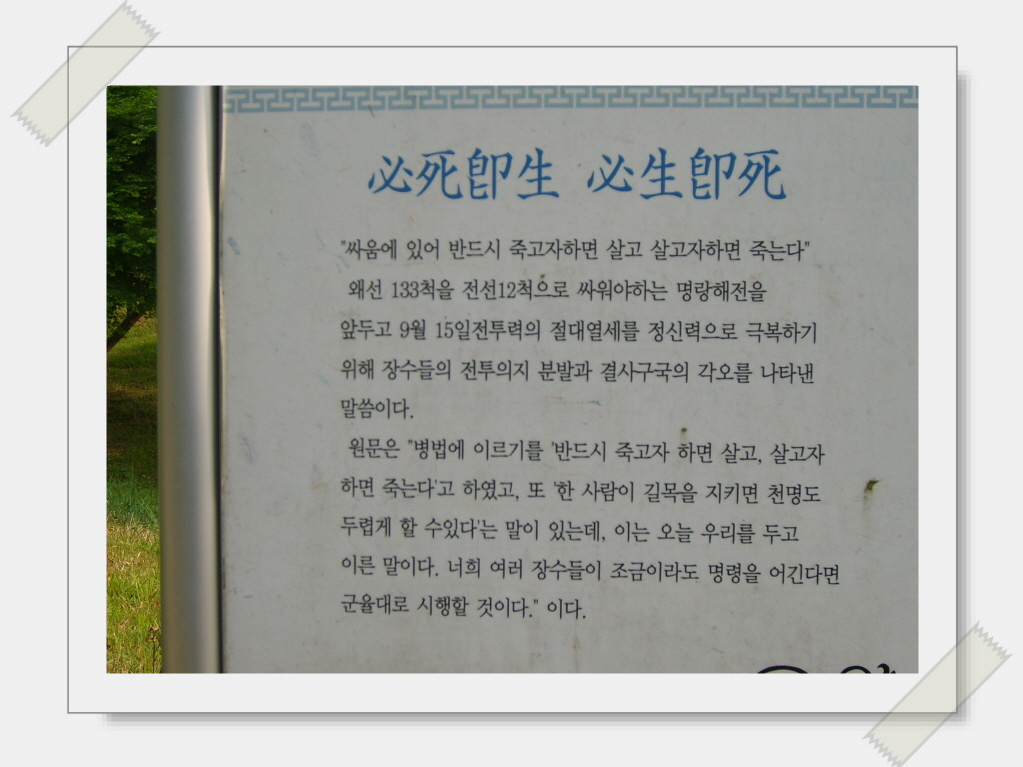 必死卽生 必生卽死
"싸움에 있어 반드시 죽고자하면 살고 살고자하면 죽는다"
왜선 133척을 전선12척으로 싸워야하는 명랑해전을
앞두고 9월 15일전투력의 절대열세를 정신력으로 극복하기
위해 장수들의 전투의지 분발과 결사구국의 각오를 나타낸
말씀이다.
원문은 "병법에 이르기를 '반드시 죽고자 하면 살고, 살고자
하면 죽는다'고 하였고, 또 '한 사람이 길목을 지키면 천명도
두렵게 할 수있다'는 말이 있는데, 이는 오늘 우리를 두고
이른 말이다. 너희 여러 장수들이 조금이라도 명령을 어긴다면
군율대로 시행할 것이다." 이다.